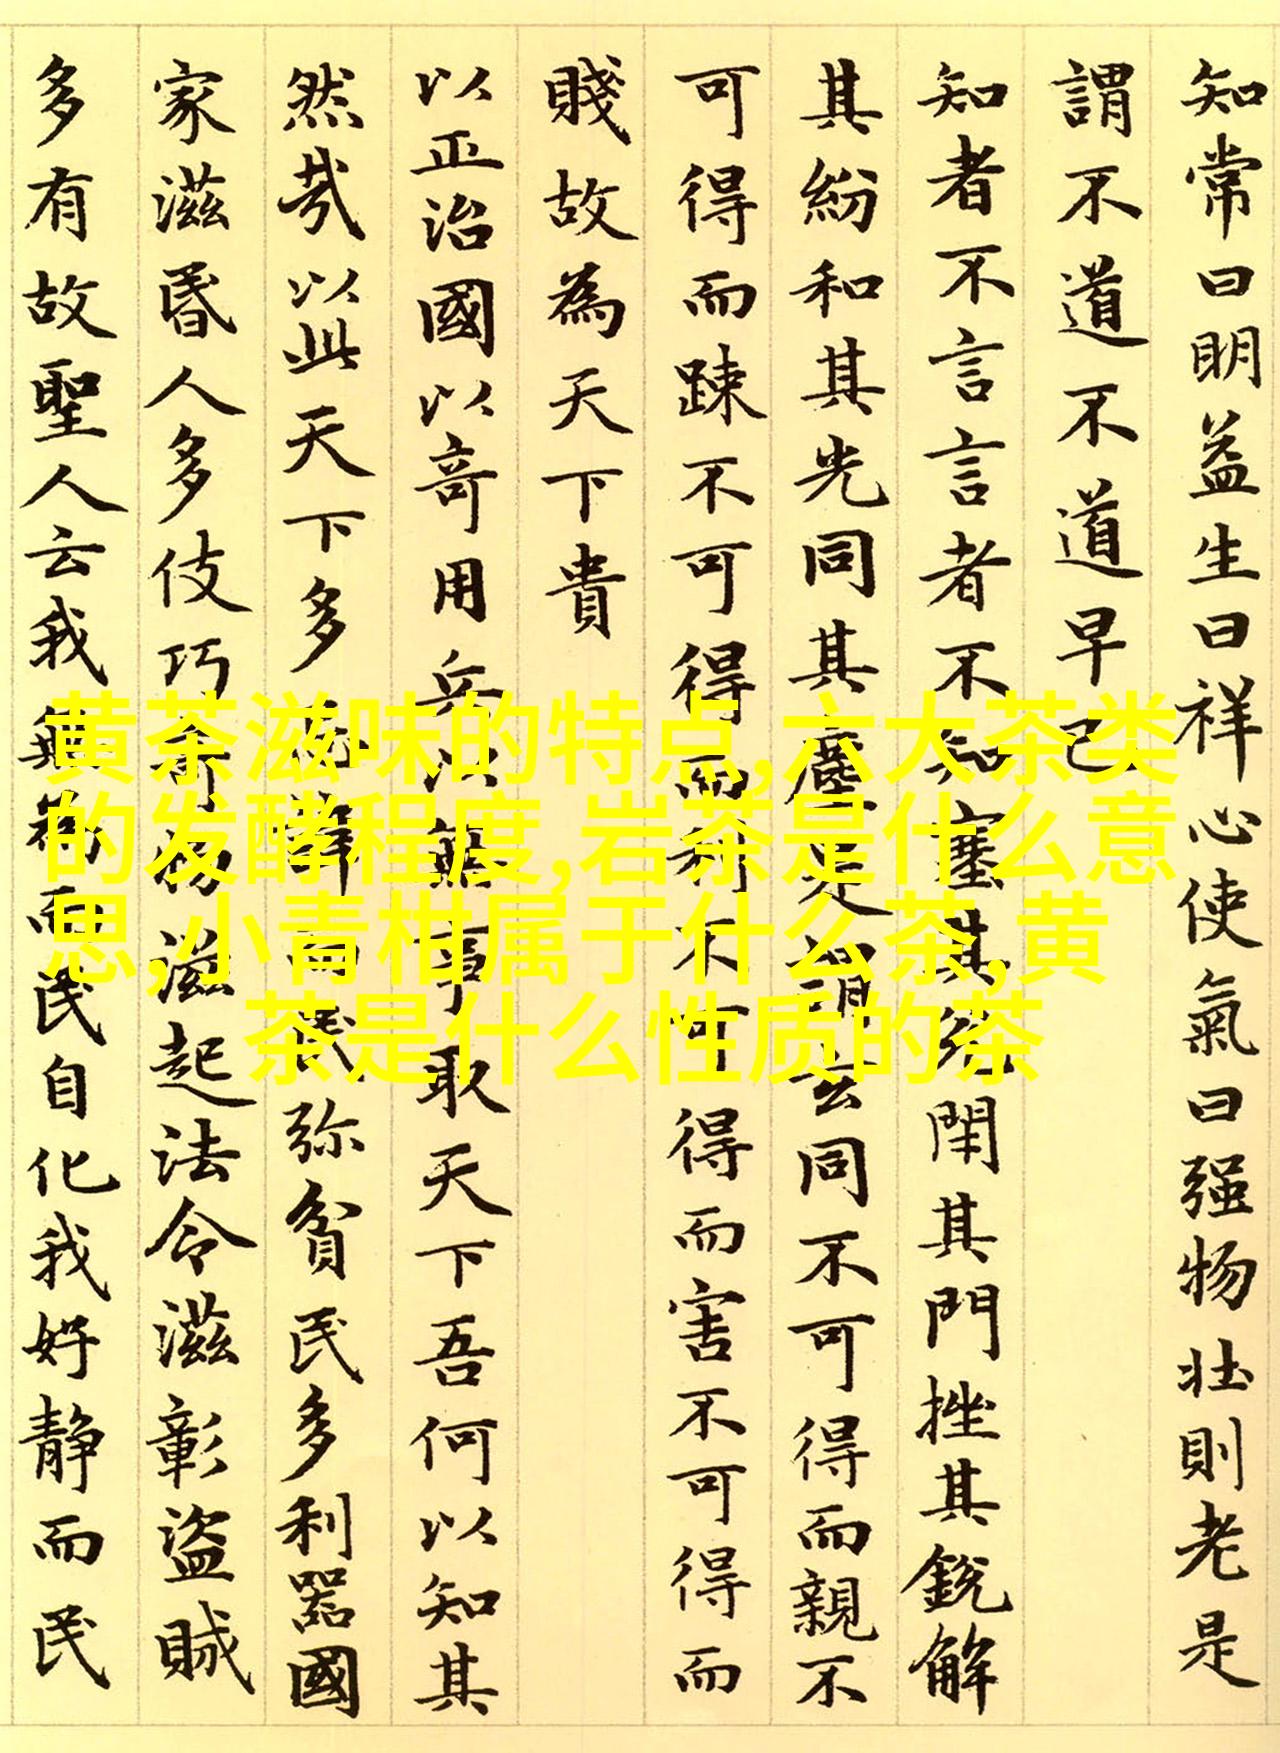 知常曰明益生曰祥心使氣曰强物壯則老是
謂不道不道早已
知者不言言者不知塞其閉其門挫其銳解
其紛和其光同其塵是謂玄同不可得而親不
可得而踈不可得而利不可得而害不可得而
賤故為天下貴
以正治國以竒用兵以無事取天下吾何以知其
然哉以此天下多忌諱而民弥貧民多利器國
家滋昬人多伎巧奇物滋起法令滋彰盜賊
多有故聖人云我無為而民自化我好静而民
黄茶滋味的特点,六大茶类
的发酵程度,岩茶是什么意
思,小青柑属于什么茶,黄
茶是什么性质的茶